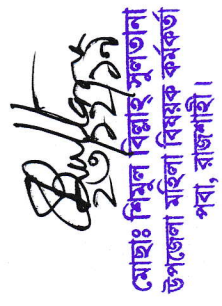 মোছাঃ শিমুল বিল্লাহ সুলতানা
উপজেলা মহিলা বিষয়ক কর্মকর্তা
পবা, রাজশাহী।